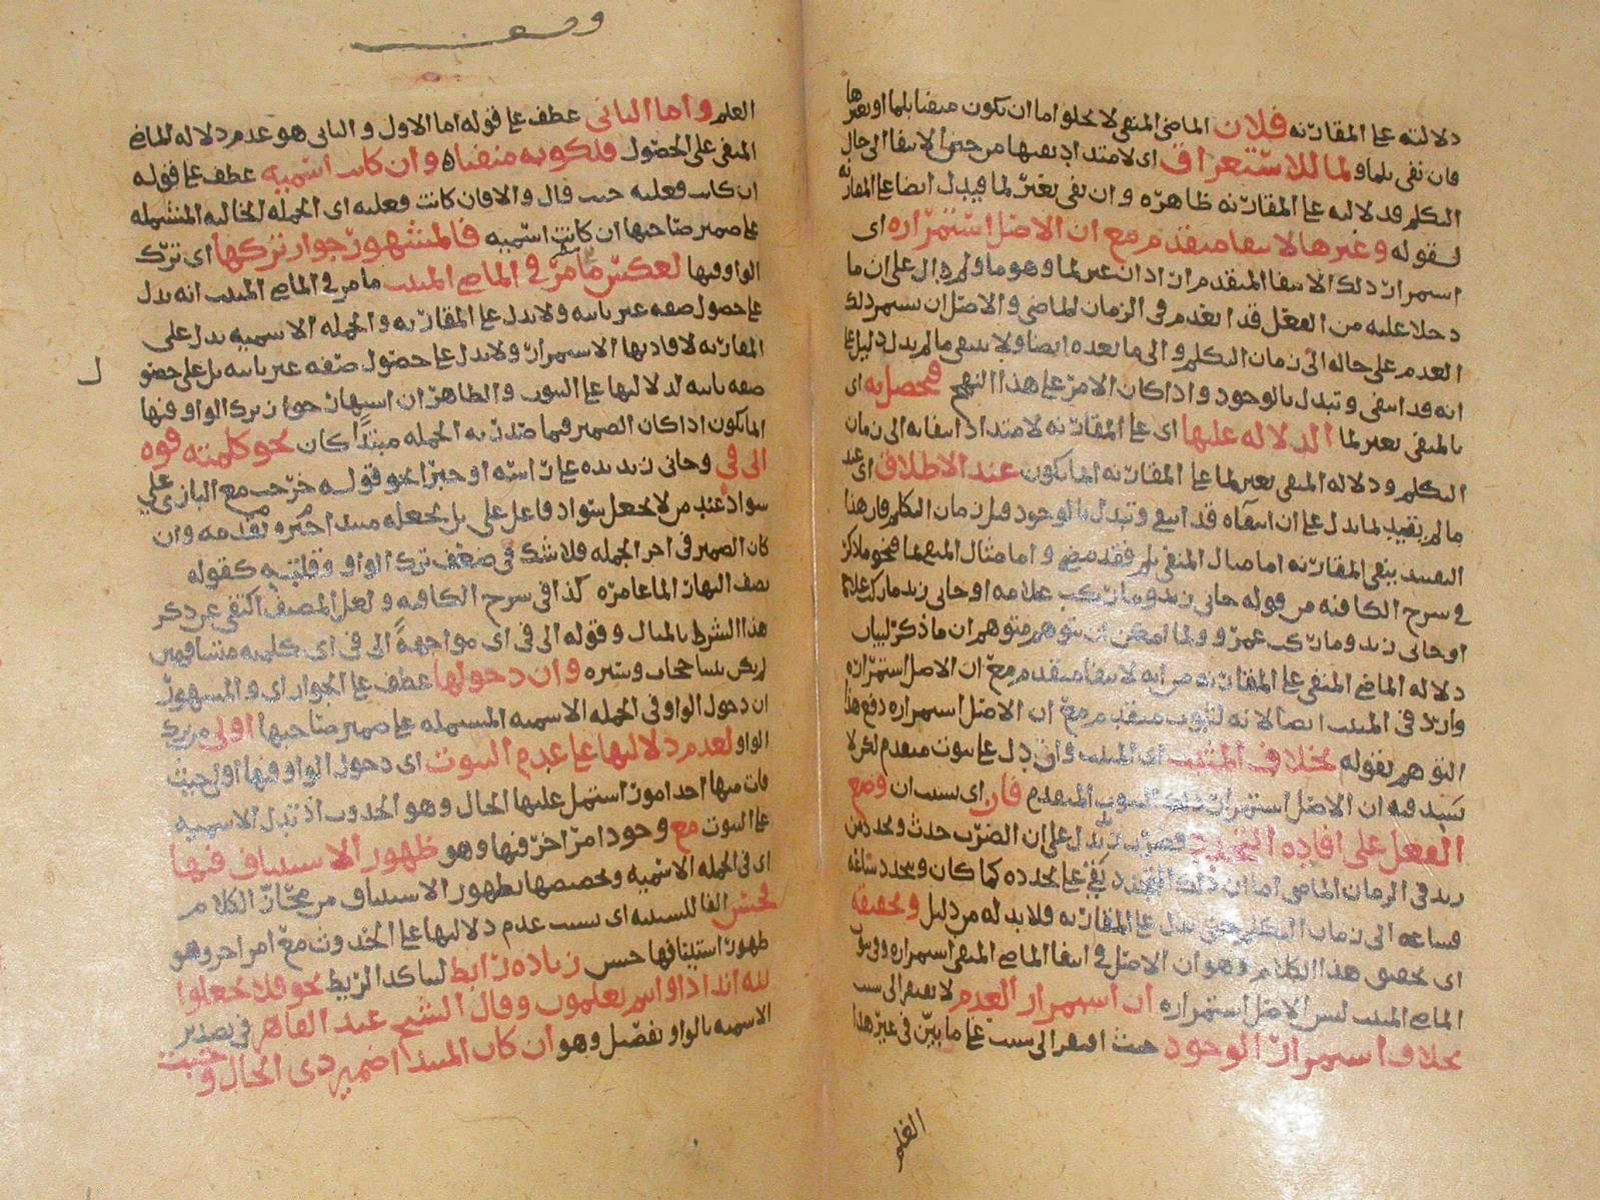 دلالته على المقارنة فلان الماضي المنفى لا يخلو اما ان يكون منفيا بلما او بغيرها
فان نفى بلما و لما للاستغراق اى لامتداد نفيها من حين الانتفا الى حال
التكلم فدلالته على المقارنة ظاهره وان نفى بغير لما فيدل ايضا على المقارنه
لقوله وغيرها لانتفا متقدم مع ان الاصل استمراره اى
استمرار ذلك الانتفا المتقدم اذ ان غير لما وهو ما و لم دال على ان ما
دخلا عليه من الفعل قد انعدم فى الزمان الماضى والاصل ان يستمر ذلك
العدم على حاله الى زمان التكلم والى ما بعده ايضا ولا ينتفى ما لم يدل دليل على
انه قد انتفى وتبدل بالوجود واذا كان الامر على هذا النهج فيحصل به اى
بالمنفى بغير لما الدلاله عليها اى على المقارنه لامتداد انتفائه الى زمان
التكلم ودلاله المنفى بغير لما على المقارنه انما يكون عند الاطلاق اى عند
ما لم يقيد بما يدل على ان انتفاه قد انتفى وتبدل بالوجود قبل زمان التكلم فان هذا
التقييد ينفى المقارنه اما مثال المنفى بلم فقد مضى واما مثال المنفى بما فنحو ما ذكر
فى شرح الكافيه من قوله جانى زيد وما ركب غلامه او جانى زيد ما ركب غلامه
او جانى زيد وما ركب عمرو ولما امكن ان يتوهم متوهم ان ما ذكر لبيان
دلاله الماضى المنفى على المقارنه من انه لانتفا متقدم مع ان الاصل استمراره
وارد فى المثبت ايضا لانه لثبوت متقدم مع ان الاصل استمراره دفع هذا
التوهم بقوله بخلاف المثبت اى المثبت وان دل على ثبوت متقدم لكن لا
فيه ان الاصل استمرار ذلك الثبوت المتقدم فان اى بسبب ان وضع
الفعل على افاده التجدد فضرب يدل على ان الضرب حدث وتجدد من
زيد فى الزمان الماضى اما ان ذلك التجدد بقى على تجدده كما كان ويتجدد ساعه
فساعه الى زمان التكلم حتى يدل على المقارنه فلا بد له من دليل وتحقيقه
اى تحقيق هذا الكلام وهو ان الاصل فى انتفا الماضى المنفى استمراره وثبوت
الماضى المثبت ليس الاصل استمراره ان استمرار العدم لا يفتقر الى سبب
بخلاف استمرار الوجود حيث افتقر الى سبب على ما بين فى غير هذا
العلم
وقف
العلم واما الثانى عطف على قوله اما الاول والثانى هو عدم دلاله الماضى
المنفى على الحصول فلكونه منفيا وان كانت اسميه عطف على قوله
ان كانت فعليه حيث قال والا فان كانت فعليه اى الجمله الحاليه المشتمله
على ضمير صاحبها ان كانت اسميه فالمشهور جواز تركها اى ترك
الواو فيها لعكس ما مر فى الماضى المثبت ما مر فى الماضى المثبت انه يدل
على حصول صفه غير ثابته ولا يدل على المقارنه والجمله الاسميه يدل على
المقارنه لافادتها الاستمرار ولا يدل على حصول صفه غير ثابته بل على حصول
صفه ثابته لدلالتها على الثبوت والظاهر ان اشتهار جواز ترك الواو فيها
انما يكون اذا كان الضمير فيما صدر به الجمله مبتدأ كان نحو كلمته فوه
الى فى وجانى زيد يده على راسه او خبرا نحو قوله خرجت مع البازى على
سواد عند من لا يجعل سواد فاعل على بل يجعله مبتدا خبره تقدمه وان
كان الضمير فى اخر الجمله فلا شك فى ضعف ترك الواو وقلته كقوله
نصف النهار الما غامره كذا فى شرح الكافيه ولعل المصنف اكتفى عن ذكر
هذا الشرط بالمثال وقوله الى فى اى مواجهة الى فى اى كلمته مشافهين
لم يكن بيننا حجاب وستره وان دخولها عطف على الجواز اى والمشهور
ان دخول الواو فى الجمله الاسميه المشتمله على ضمير صاحبها اولى من ترك
الواو لعدم دلالتها على عدم الثبوت اى دخول الواو فيها اولى حيث
فات منها احد امور اشتمل عليها الحال وهو الحدوث اذ تدل الاسميه
على الثبوت مع وجود امر اخر فيها وهو ظهور الاستيناف فيها
اى فى الجمله الاسميه وتخصيصها بظهور الاستيناف من مجاز الكلام
فحسن الفا للسببيه اى بسبب عدم دلالتها على الحدوث مع امر اخر وهو
ظهور استينافها حسن زياده رابط ليتاكد الربط نحو فلا تجعلوا
لله اندادا وانتم تعلمون وقال الشيخ عبد القاهر فى تصدير
الاسميه بالواو تفصل وهو ان كان المبتدا ضمير ذى الحال وجبت